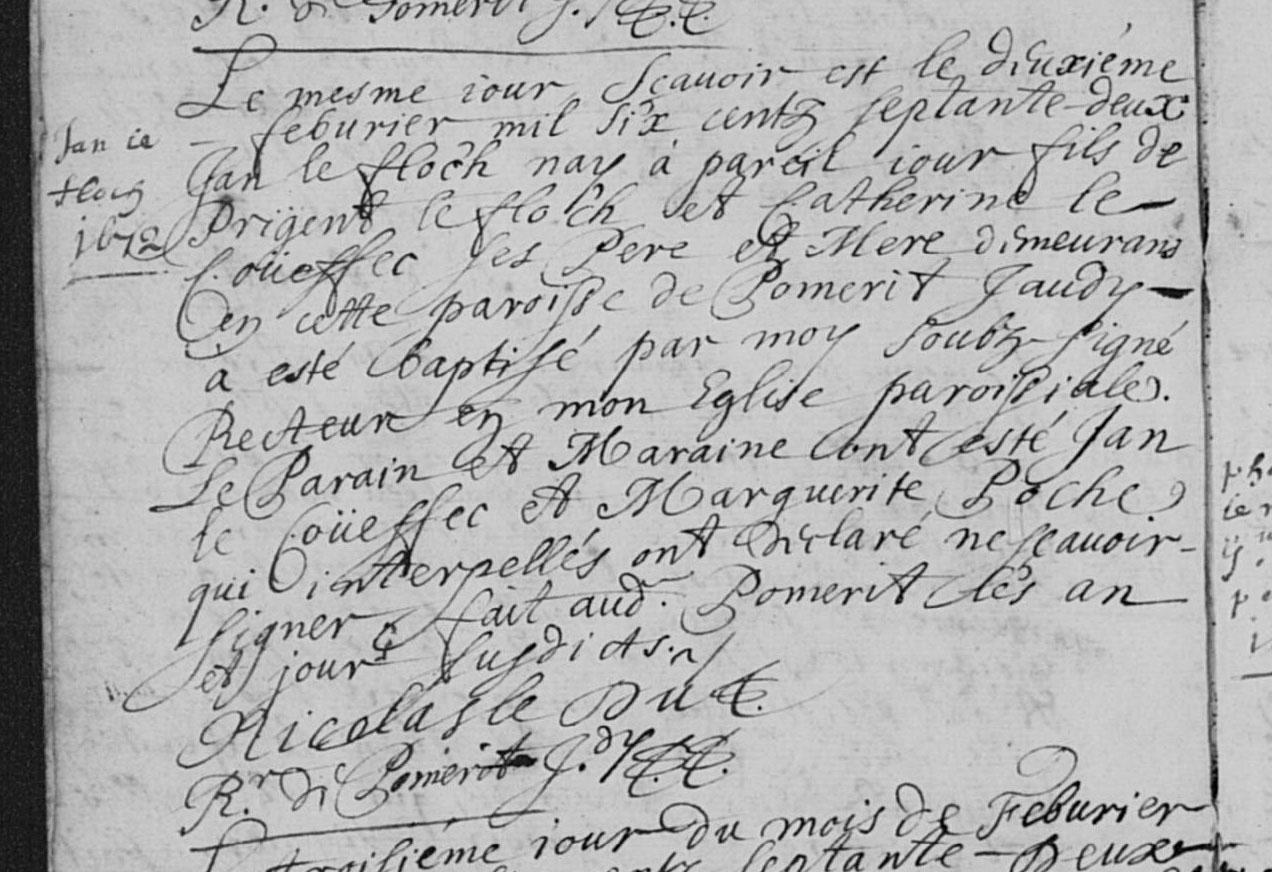 R. de Pomerit J.
Le mesme iour Scauoir est le deuxiéme
feburier mil six centz septante-deux
Jan le floch nay à pareil iour fils de
Prigent le floch et Catherine le
Coüeffec ses Pere et Mere demeurans
en cette paroisse de Pomerit Jaudy
a esté baptisé par moy soubz-signé
Recteur en mon Eglise paroissiale.
Le Parain et Maraine ont esté Jan
le Coüeffec et Marguerite Poche
qui interpellés ont déclaré ne scauoir-
signer fait aud. Pomerit les an
et jour susdicts.
Jan le
floch
1672
Nicolas le Du
R.r de Pomerit J.dy
troisiéme iour du mois de Feburier
septante-Deux